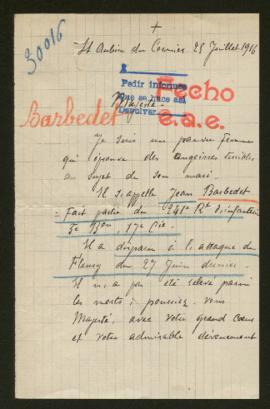 +
30016
St Aubin du Cormier 25 Juillet 1916
Pedir informes
Que se hace así
Devolver
Fecho
e.a.e.
Barbedet
Majesté
Je suis une pauvre femme
qui éprouve des angoisses terribles
au sujet de son mari.
Il s'appelle Jean Barbedet
Fait partie du 241e Rt d'infanterie
5e Bon, 17e Cie.
Il a disparu à l'attaque de
Fleury du 27 Juin dernier.
Il n'a pas été relevé parmi
les morts; pourriez-vous
Majesté, avec votre grand cœur
et votre admirable dévouement